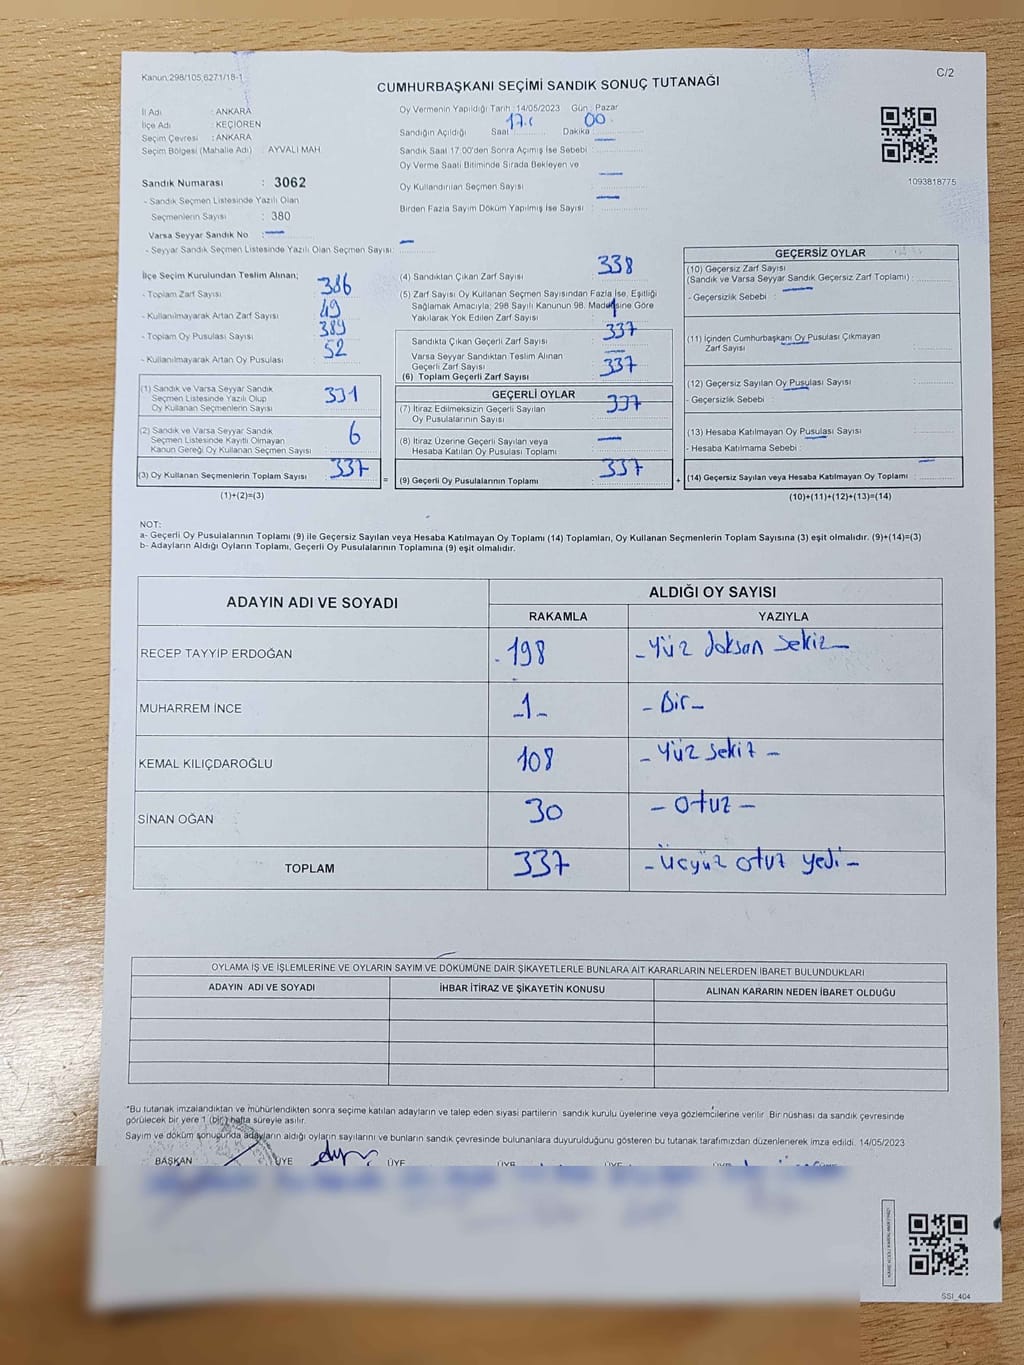 Kanun:298/105,6271/18-1
C/2
CUMHURBAŞKANI SEÇİMİ SANDIK SONUÇ TUTANAĞI
İl Adı : ANKARA
İlçe Adı : KEÇİÖREN
Seçim Çevresi : ANKARA
Seçim Bölgesi (Mahalle Adı) : AYVALI MAH
Sandık Numarası : 3062
- Sandık Seçmen Listesinde Yazılı Olan
Seçmenlerin Sayısı : 380
Varsa Seyyar Sandık No : —
- Seyyar Sandık Seçmen Listesinde Yazılı Olan Seçmen Sayısı: —
Oy Vermenin Yapıldığı Tarih :14/05/2023 Gün : Pazar
Sandığın Açıldığı Saat 17: Dakika : 00
Sandık Saat 17:00'den Sonra Açımış İse Sebebi : —
Oy Verme Saati Bitiminde Sırada Bekleyen ve
Oy Kullandırılan Seçmen Sayısı : —
Birden Fazla Sayım Döküm Yapılmış İse Sayısı : —
1093818775
İlçe Seçim Kurulundan Teslim Alınan;
- Toplam Zarf Sayısı : 386
- Kullanılmayarak Artan Zarf Sayısı : 49
- Toplam Oy Pusulası Sayısı : 389
- Kullanılmayarak Artan Oy Pusulası : 52
(1) Sandık ve Varsa Seyyar Sandık
Seçmen Listesinde Yazılı Olup
Oy Kullanan Seçmenlerin Sayısı : 331
(2) Sandık ve Varsa Seyyar Sandık
Seçmen Listesinde Kayıtlı Olmayan
Kanun Gereği Oy Kullanan Seçmen Sayısı : 6
(3) Oy Kullanan Seçmenlerin Toplam Sayısı : 337
(1)+(2)=(3)
=
(4) Sandıktan Çıkan Zarf Sayısı : 338
(5) Zarf Sayısı Oy Kullanan Seçmen Sayısından Fazla İse, Eşitliği
Sağlamak Amacıyla; 298 Sayılı Kanunun 98. Maddesine Göre
Yakılarak Yok Edilen Zarf Sayısı : 1
Sandıkta Çıkan Geçerli Zarf Sayısı : 337
Varsa Seyyar Sandıktan Teslim Alınan
Geçerli Zarf Sayısı : —
(6) Toplam Geçerli Zarf Sayısı : 337
GEÇERLİ OYLAR
(7) İtiraz Edilmeksizin Geçerli Sayılan
Oy Pusulalarının Sayısı : 337
(8) İtiraz Üzerine Geçerli Sayılan veya
Hesaba Katılan Oy Pusulası Toplamı : —
(9) Geçerli Oy Pusulalarının Toplamı : 337
+
GEÇERSİZ OYLAR
(10) Geçersiz Zarf Sayısı
(Sandık ve Varsa Seyyar Sandık Geçersiz Zarf Toplamı) :
- Geçersizlik Sebebi : —
(11) İçinden Cumhurbaşkanı Oy Pusulası Çıkmayan
Zarf Sayısı : —
(12) Geçersiz Sayılan Oy Pusulası Sayısı : —
- Geçersizlik Sebebi :
(13) Hesaba Katılmayan Oy Pusulası Sayısı : —
- Hesaba Katılmama Sebebi :
(14) Geçersiz Sayılan veya Hesaba Katılmayan Oy Toplamı : —
(10)+(11)+(12)+(13)=(14)
NOT:
a- Geçerli Oy Pusulalarının Toplamı (9) ile Geçersiz Sayılan veya Hesaba Katılmayan Oy Toplamı (14) Toplamları, Oy Kullanan Seçmenlerin Toplam Sayısına (3) eşit olmalıdır. (9)+(14)=(3)
b- Adayların Aldığı Oyların Toplamı, Geçerli Oy Pusulalarının Toplamına (9) eşit olmalıdır.
ADAYIN ADI VE SOYADI
ALDIĞI OY SAYISI
RAKAMLA YAZIYLA
RECEP TAYYİP ERDOĞAN 198 - Yüz doksan sekiz -
MUHARREM İNCE -1- - Bir -
KEMAL KILIÇDAROĞLU 108 - Yüz sekiz -
SİNAN OĞAN 30 - Otuz -
TOPLAM 337 - Üçyüz otuz yedi -
OYLAMA İŞ VE İŞLEMLERİNE VE OYLARIN SAYIM VE DÖKÜMÜNE DAİR ŞİKAYETLERLE BUNLARA AİT KARARLARIN NELERDEN İBARET BULUNDUKLARI
ADAYIN ADI VE SOYADI İHBAR İTİRAZ VE ŞİKAYETİN KONUSU ALINAN KARARIN NEDEN İBARET OLDUĞU
*Bu tutanak imzalandıktan ve mühürlendikten sonra seçime katılan adayların ve talep eden siyasi partilerin sandık kurulu üyelerine veya gözlemcilerine verilir. Bir nüshası da sandık çevresinde
görülecek bir yere 1 (bir) hafta süreyle asılır.
Sayım ve döküm sonuçunda adayların aldığı oyların sayılarını ve bunların sandık çevresinde bulunanlara duyurulduğunu gösteren bu tutanak tarafımızdan düzenlenerek imza edildi. 14/05/2023
BAŞKAN ÜYE ÜYE ÜYE ÜYE
SSİ_404